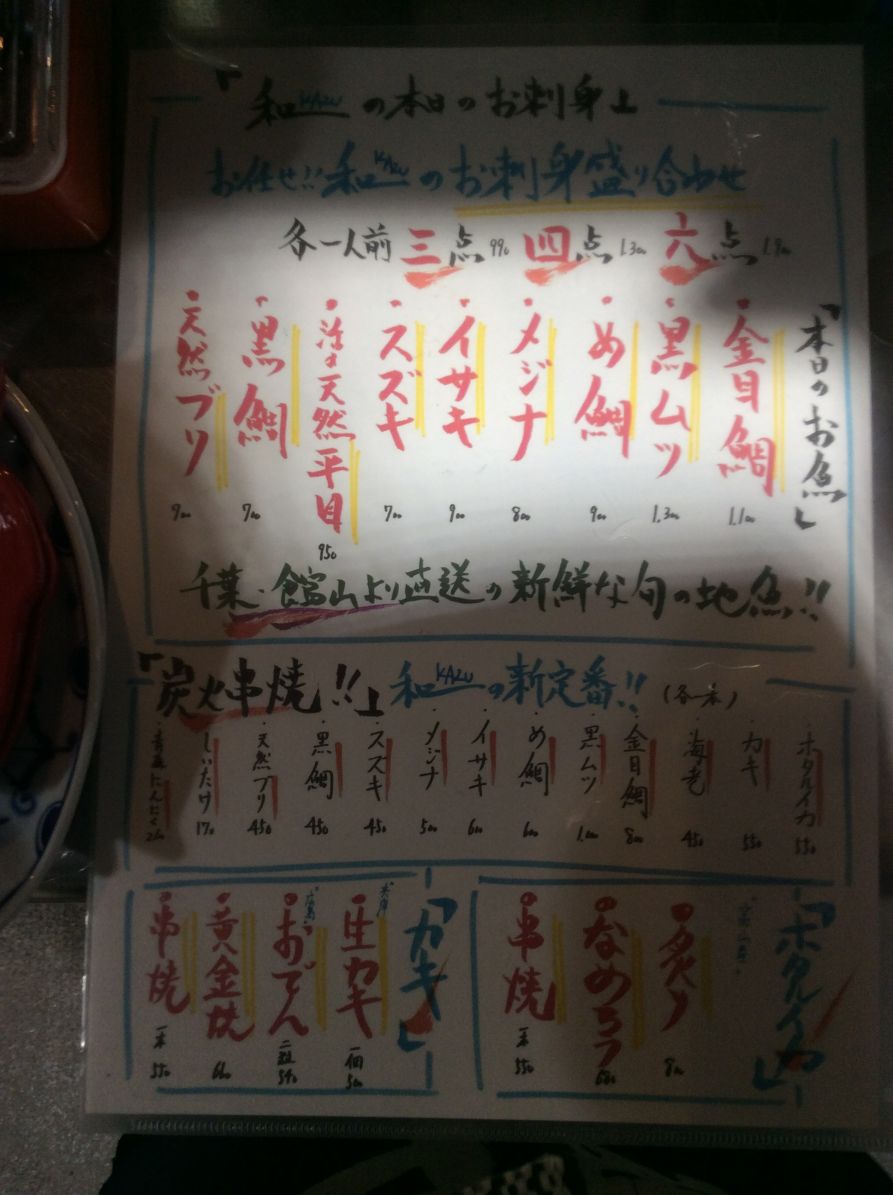 「和KAZUの本日のお刺身」
お任せ!!和KAZUのお刺身盛り合わせ
各一人前 三点 990 四点 1.300 六点 1.900
「本日のお魚」
・金目鯛 1.100
・黒ムツ 1.300
・め鯛 900
・メジナ 800
・イサキ 900
・スズキ 700
・活〆天然平目 950
・黒鯛 700
・天然ブリ 900
千葉・館山より直送の新鮮な旬の地魚!!
「炭火串焼!!」和KAZUの新定番!!(各一本)
・ホタルイカ 550
・カキ 550
・海老 450
・金目鯛 800
・黒ムツ 1.000
・め鯛 600
・イサキ 600
・メジナ 500
・スズキ 450
・黒鯛 450
・天然ブリ 450
・しいたけ 170
・青森にんにく
「ホタルイカ」
・炙り 800
・なめろう 680
・串焼 一本 550
「カキ」
・生カキ 一個 500
"広島"
・おでん 二粒 540
・黄金焼 660
・串焼 一本 550